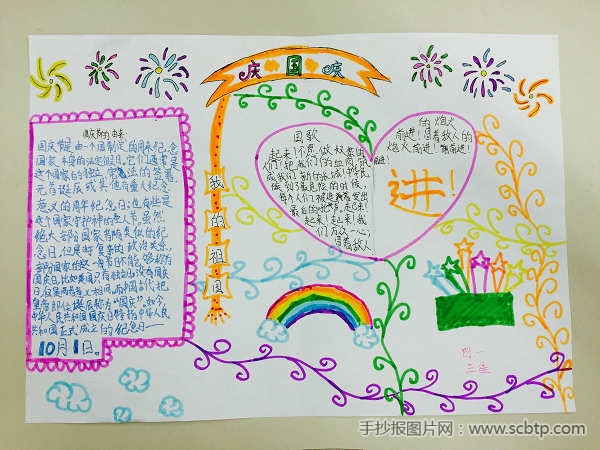 庆国庆
国庆节的由来
国庆节是由一个国家制定的用来纪念
国家本身的法定假日,它们通常是
这个国家的独立、宪法的签署、
元首诞辰或其他有重大纪念
意义的周年纪念日;也有些是
这个国家守护神的圣人节。虽然
绝大部分国家都有类似的纪
念日,但是由于复杂的政治关系,
部分国家的这一节日不能够称为
国庆日,比如美国只有独立日,没有国庆
日,但是两者意义相同。而中国古代把
皇帝即位、诞辰称为“国庆”。如今,
中华人民共和国国庆日特指中华人民
共和国正式成立的纪念日——
10月1日。
我的祖国
国歌
起来!不愿做奴隶的
人们!把我们的血肉,筑
成我们新的长城!中华民
族到了最危险的时候,
每个人们被迫着发出
最后的吼声。起来!
起来!起来!我
们万众一心,
冒着敌人
的炮火
前进!冒着敌人的
炮火前进!前进!
前进!
进!
四一
手抄报图片网:www.scbtp.com